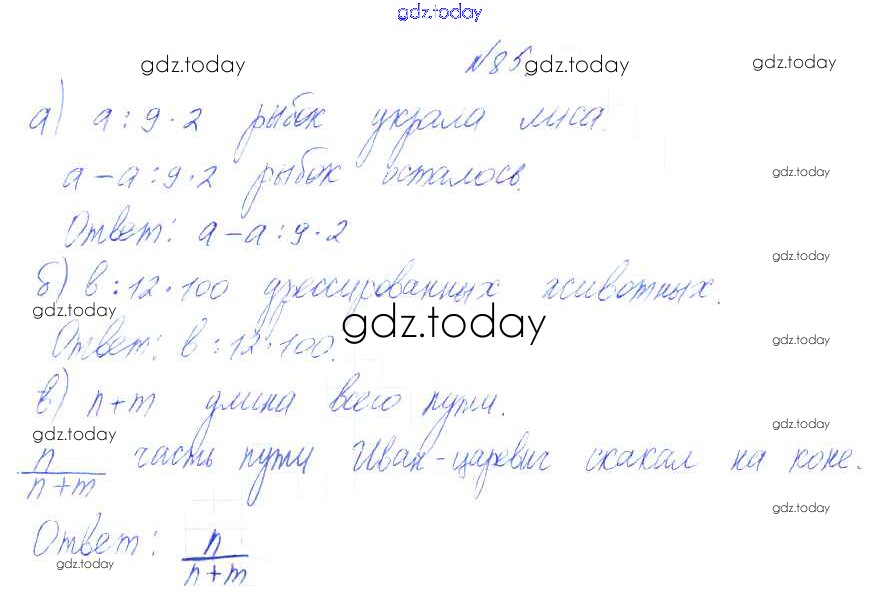 gdz.today
gdz.today №85 gdz.today gdz.today
а) a : 9 · 2 рыбок украла лиса.
a – a : 9 · 2 рыбок осталось. gdz.today
Ответ: a – a : 9 · 2
gdz.today
б) b : 12 · 100 дрессированных животных.
gdz.today gdz.today
Ответ: b : 12 · 100. gdz.today
в) n + m длина всего пути.
gdz.today gdz.today
n/n + m часть пути Иван-царевич скакал на коне.
gdz.today
Ответ: n/n + m
gdz.today